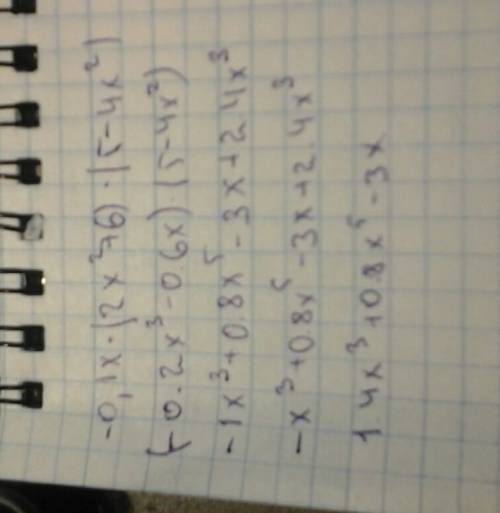 -0,1x·(2x²+6)·(5-4x²)
(-0.2x³-0.6x)·(5-4x²)
-1x³+0.8x⁵-3x+2.4x³
-x³+0.8x⁵-3x+2.4x³
1.4x³+0.8x⁵-3x